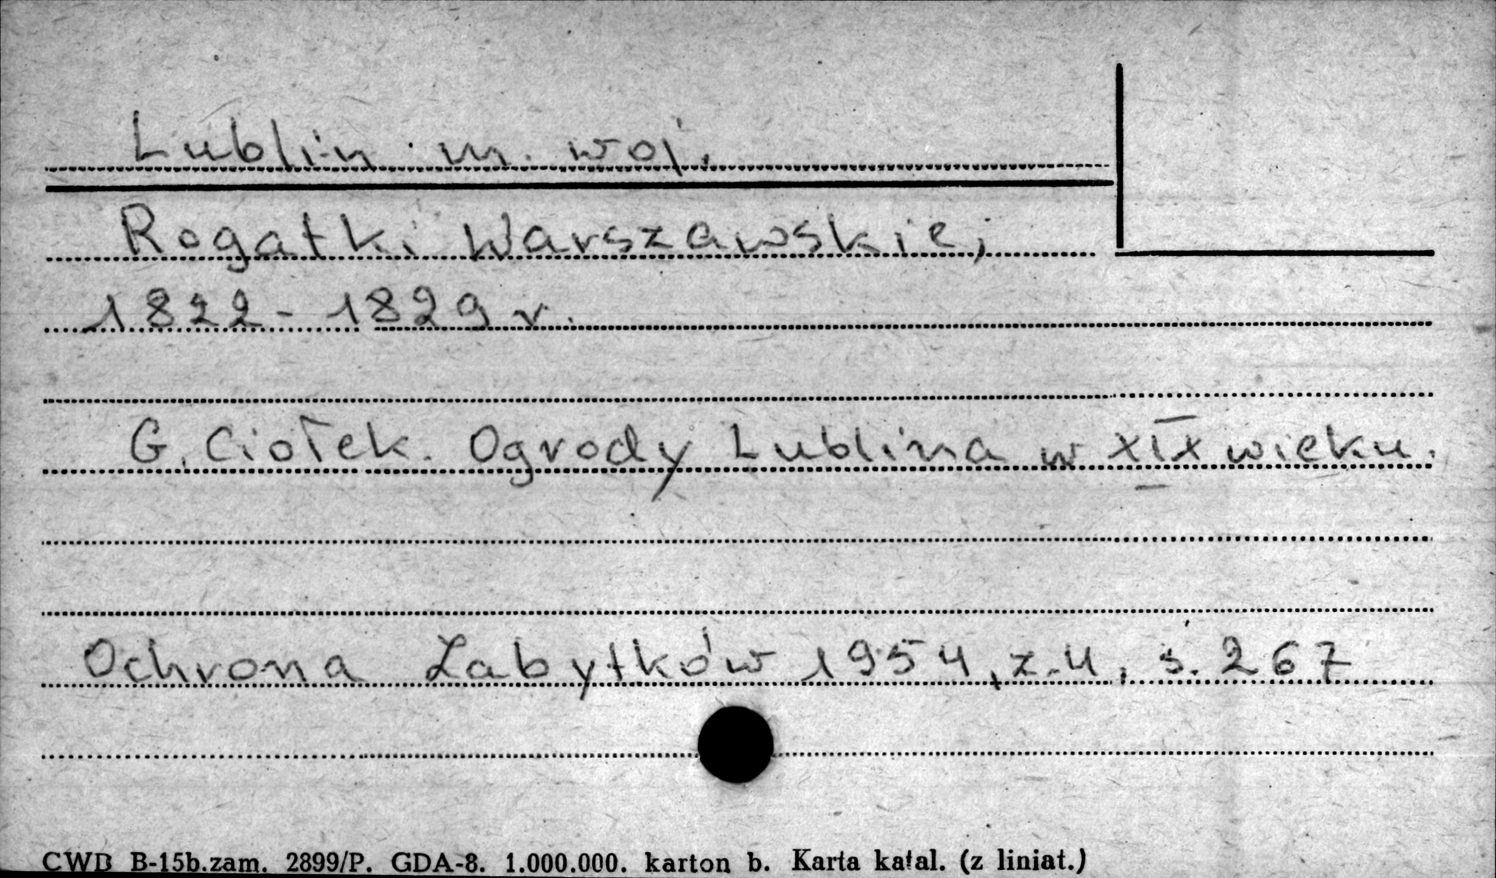 Lublin m. woj.
Rogatki Warszawskiej
1822-1829 r.
G. Ciołek. Ogrody Lublina w XIX wieku.
Ochrona Zabytków 1954, z.4, s. 267
CWD B-15b.zam. 2899/P. GDA-8. 1.000.000. karton b. Karta katal. (z liniat.)